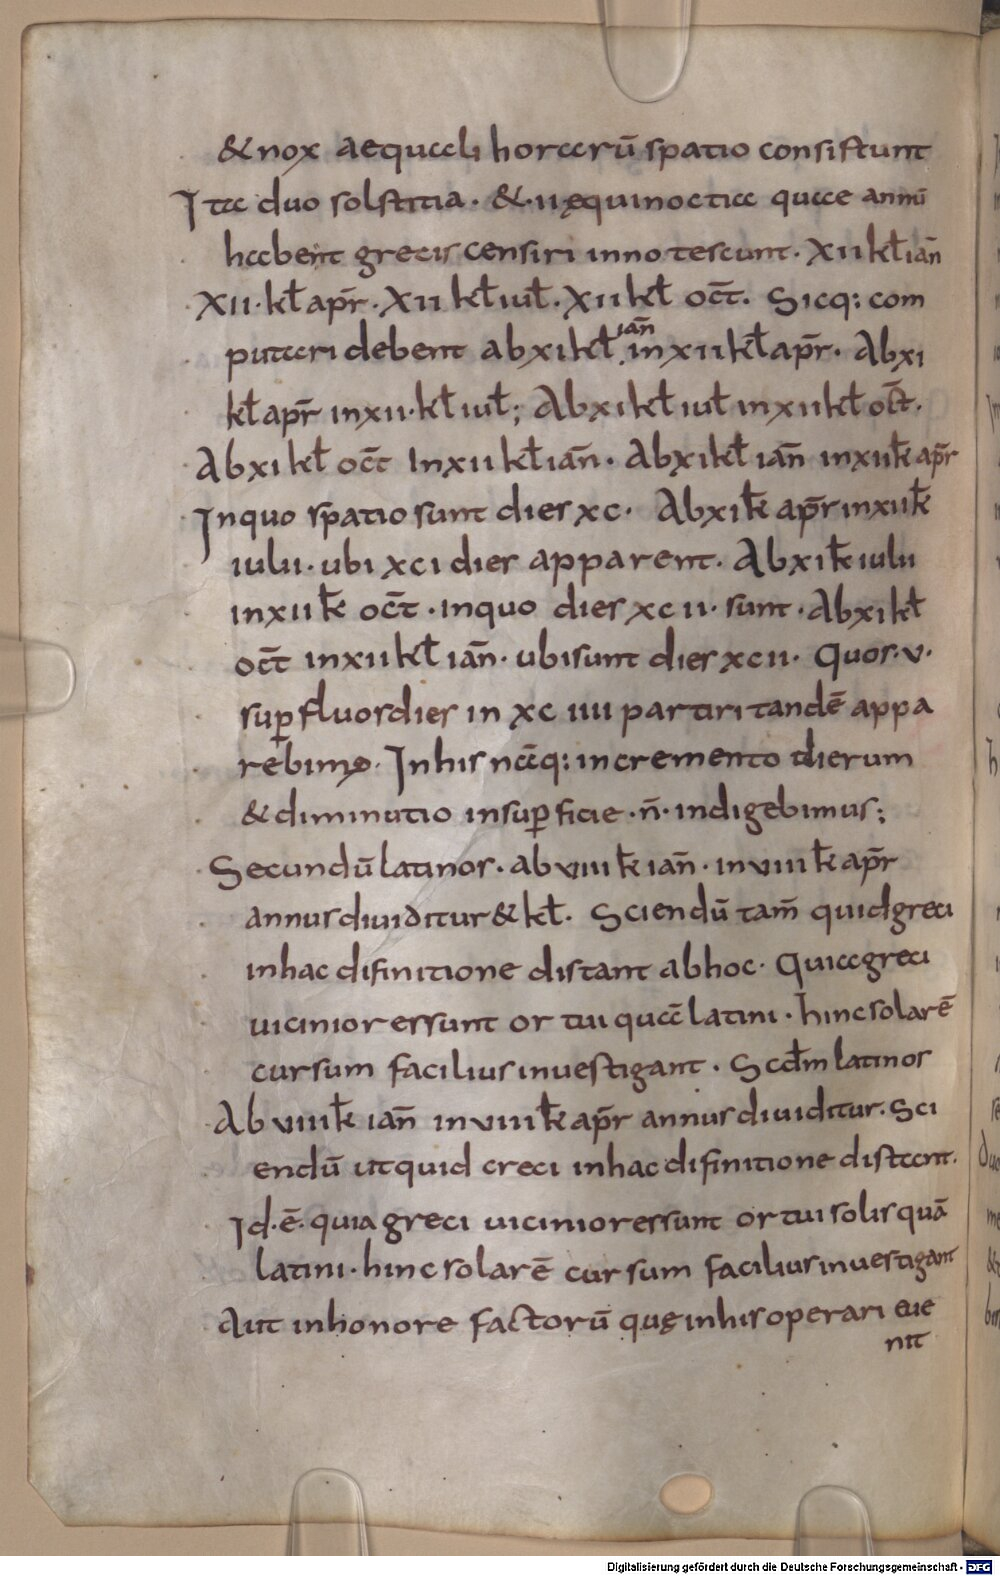 & nox aequali horarū spatio consistunt
Ita duo solstitia · & · ii ęquinoctia quae annū
habent grecis censiri innotescunt · Xii kł iañ
Xii · kł apr̄ · Xii kł iuł · Xii kł oct̄ · Sicq: com
putari debent ab xi kł iañ in xii kł apr̄ · Ab xi
kł apr̄ in xii · kł iuł; Ab xi kł iuł in xii kł oct̄ ·
Ab xi kł oct̄ In xii kł iañ · Ab xi kł iañ in xii k̄ apr̄
In quo spatio sunt dies xc · Ab xi k̄ apr̄ in xii k̄
iulii · ubi xci dies apparent · Ab xi k̄ iulii
in xii k̄ oct̄ · in quo dies xcii · sunt · Ab xi kł
oct̄ in xii kł iañ · ubi sunt dies xcii · Quos · v ·
suꝑfluos dies in xc iiii partiri tandē appa
rebimꝰ · In his nāq: incremento dierum
& diminutio in suꝑficie · n̄ · indigebimus;
Secundū latinos · ab viii k̄ iañ · in viii k̄ apr̄
annus diuiditur & kł · Sciendū tam̄ quid greci
in hac difinitione distant ab hoc · Quia greci
uiciniores sunt ortui quā latini · hinc solarē
cursum facilius inuestigant · Scdm̄ latinos
Ab viii k̄ iañ in viii k̄ apr̄ annus diuiditur · Sci
endū ut quid creci in hac difinitione distant ·
Id · ē · quia greci uiciniores sunt ortui solis quā
latini · hinc solarē cursum facilius inuestigant
Aut in honore factorū quę in his operari eue
nit
Digitalisierung gefördert durch die Deutsche Forschungsgemeinschaft - DFG